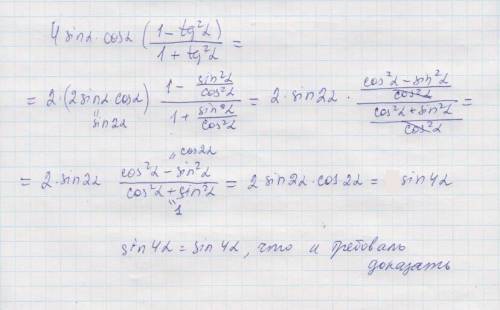 4 sinα · cosα (1 − tg²α / 1 + tg²α) =
= 2 · (2 sinα cosα) · (1 − sin²α/cos²α) / (1 + sin²α/cos²α) = 2 · sin2α · ((cos²α − sin²α)/cos²α) / ((cos²α + sin²α)/cos²α) =
" sin2α
" cos2α
= 2 · sin2α (cos²α − sin²α) / (cos²α + sin²α) = 2 sin2α · cos2α = sin4α
" 1
sin4α = sin4α, что и требовалось
доказать